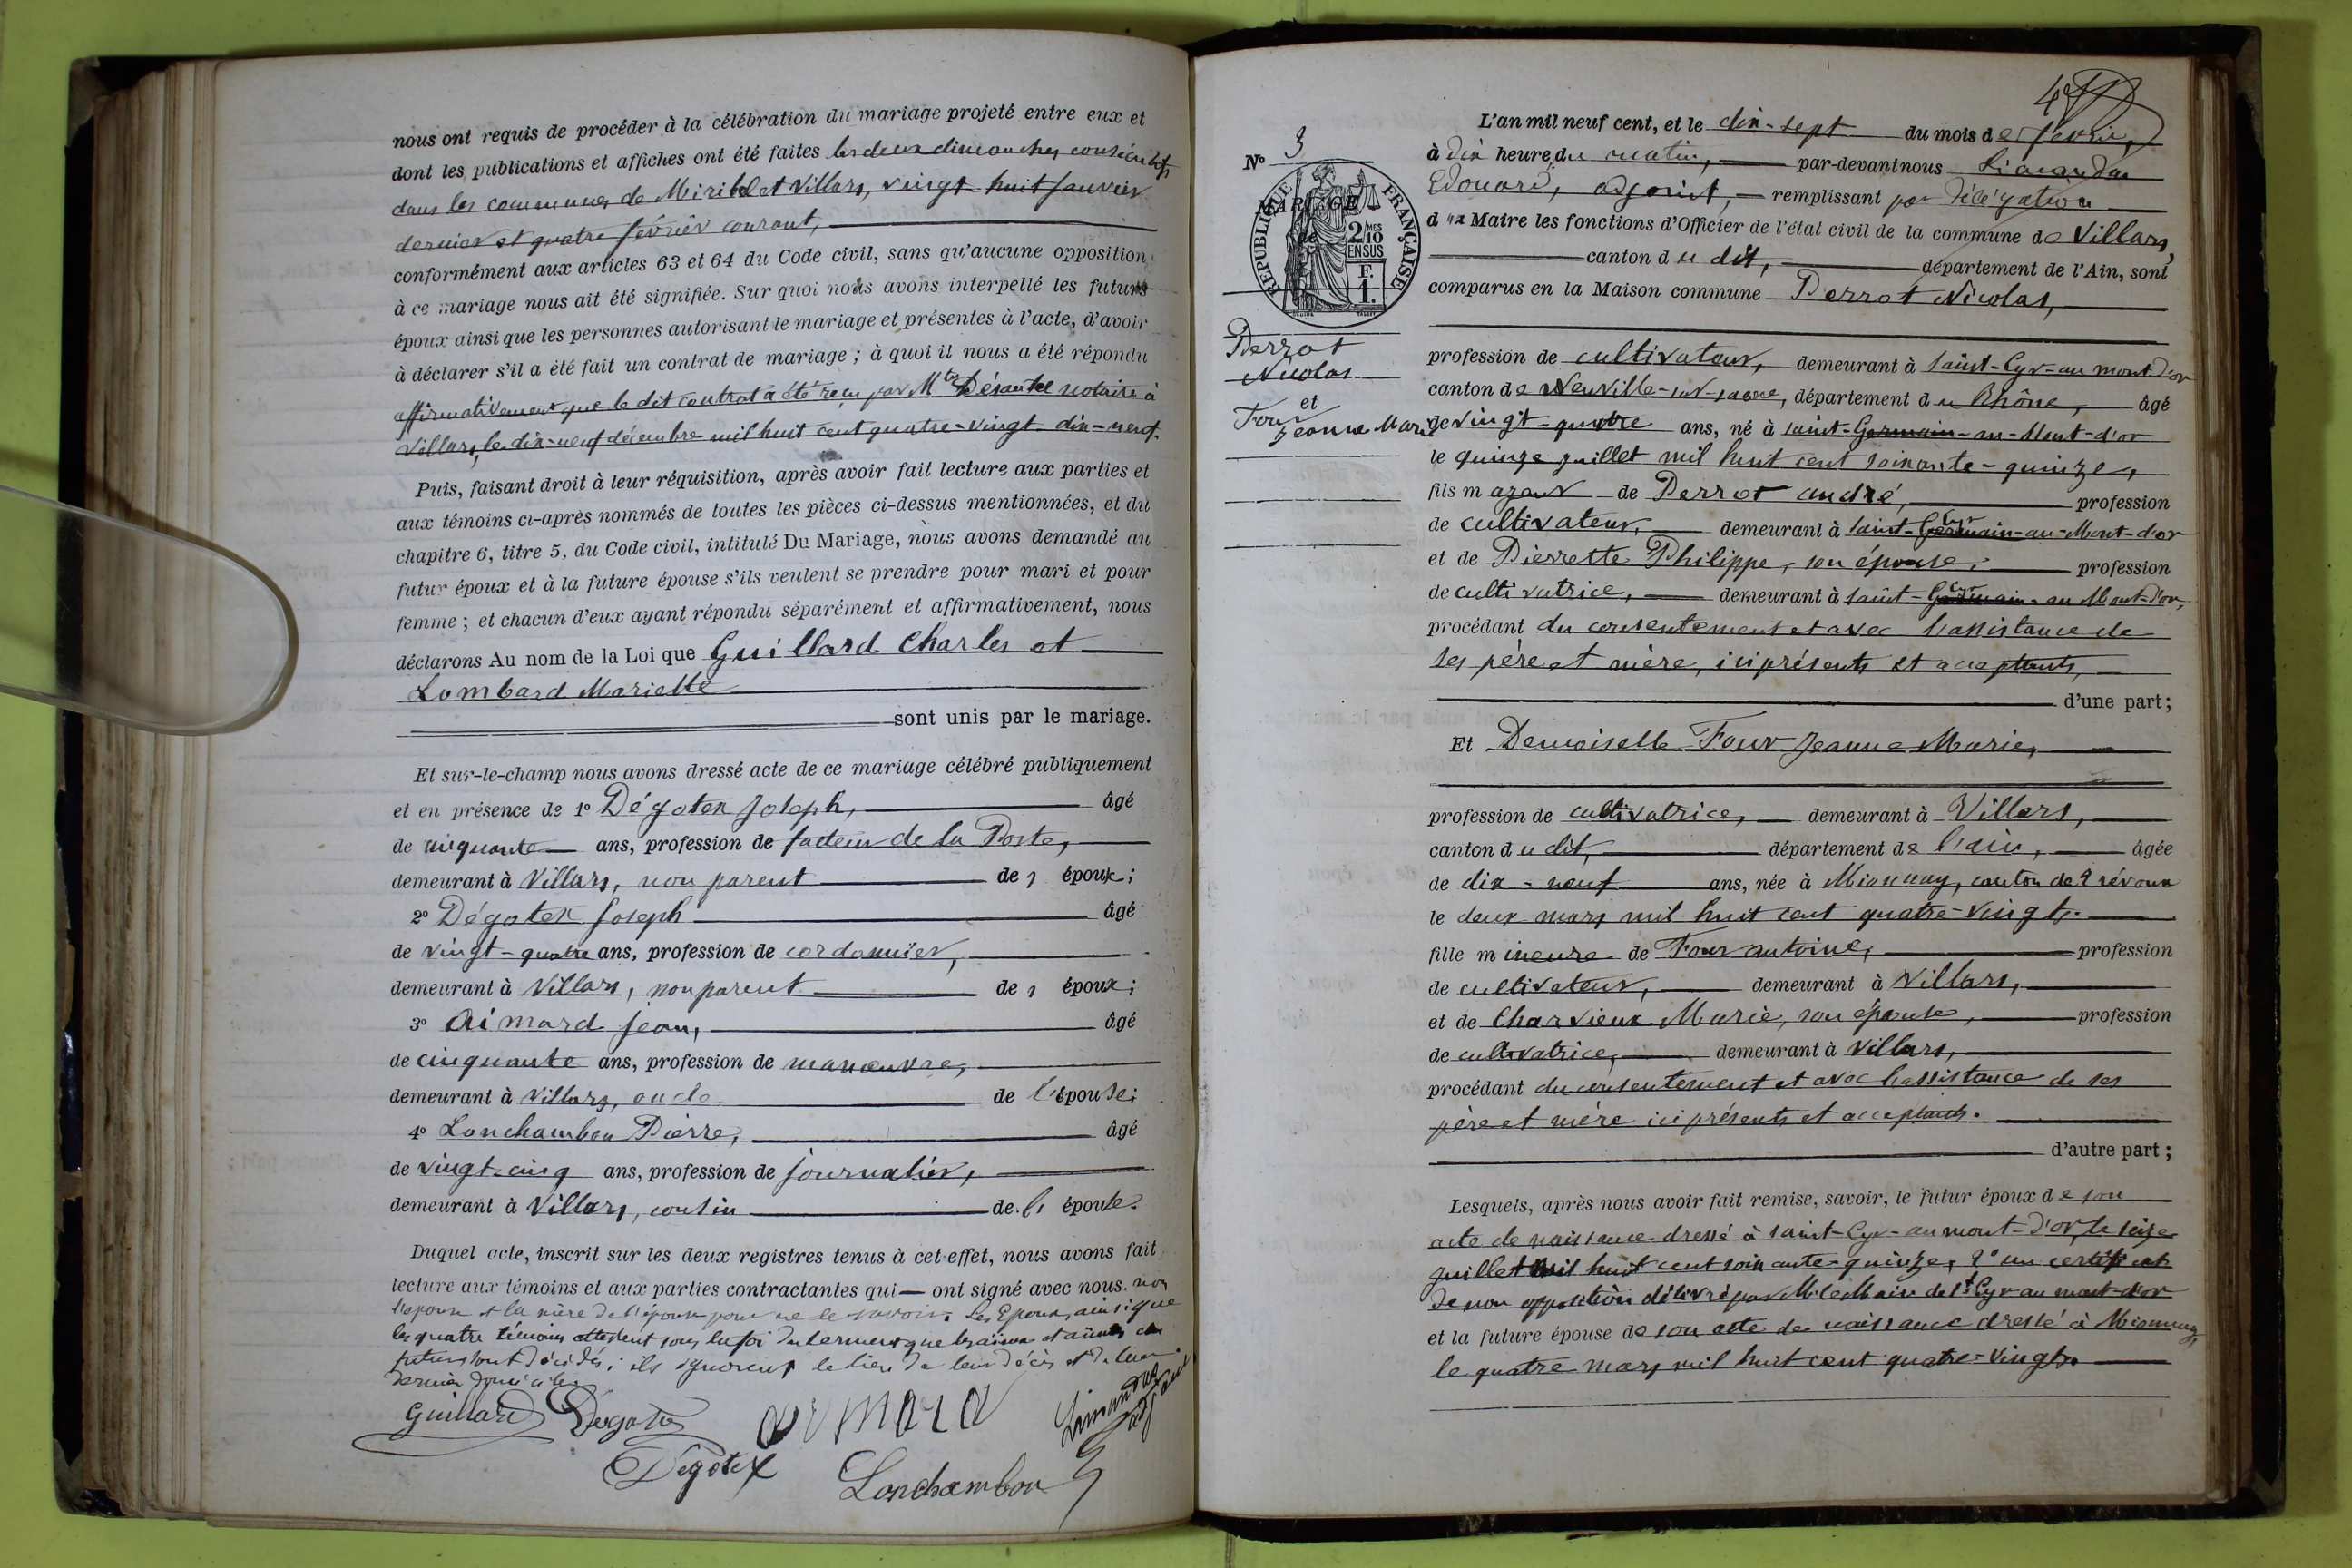 nous ont requis de procéder à la célébration du mariage projeté entre eux et
dont les publications et affiches ont été faites les deux dimanches consécutifs
dans les communes de Miribel et Villars, vingt-huit janvier
dernier et quatre février courant,
conformément aux articles 63 et 64 du Code civil, sans qu'aucune opposition
à ce mariage nous ait été signifiée. Sur quoi nous avons interpellé les futurs
époux ainsi que les personnes autorisant le mariage et présentes à l'acte, d'avoir
à déclarer s'il a été fait un contrat de mariage ; à quoi il nous a été répondu
affirmativement que le dit contrat a été reçu par Désautel notaire à
Villars, le dix-neuf décembre mil huit cent quatre-vingt dix-neuf.
Puis, faisant droit à leur réquisition, après avoir fait lecture aux parties et
aux témoins ci-après nommés de toutes les pièces ci-dessus mentionnées, et du
chapitre 6, titre 5, du Code civil, intitulé Du Mariage, nous avons demandé au
futur époux et à la future épouse s'ils veulent se prendre pour mari et pour
femme ; et chacun d'eux ayant répondu séparément et affirmativement, nous
déclarons Au nom de la Loi que Guillard Charles et
Lombard Mariette
sont unis par le mariage.
Et sur-le-champ nous avons dressé acte de ce mariage célébré publiquement
et en présence de 1° Dégotex Joseph, âgé
de cinquante ans, profession de facteur de la Poste,
demeurant à Villars, non parent des époux ;
2° Dégotex Joseph âgé
de vingt-quatre ans, profession de cordonnier,
demeurant à Villars, non parent des époux ;
3° Aimard Jean, âgé
de cinquante ans, profession de manœuvre,
demeurant à Villars, oncle de l'épouse ;
4° Lonchambon Pierre, âgé
de vingt-cinq ans, profession de journalier,
demeurant à Villars, cousin de l'épouse.
Duquel acte, inscrit sur les deux registres tenus à cet effet, nous avons fait
lecture aux témoins et aux parties contractantes qui ont signé avec nous. non
l'épouse et la mère de l'époux pour ne le savoir. Les Epoux, ainsi que
les quatre témoins attestent sous la foi du serment que les aïeux et aïeules des
futurs sont décédés ; ils ignorent le lieu de leur décès et de leur
dernier domicile.
Guillard Dégotex Aimard Limandas adjoint
Dégotex Lonchambon
4
N° 3
MARIAGE
de
RÉPUBLIQUE FRANÇAISE
2 MES 10 EN SUS
F. 1.
Perrot
Nicolas
et
Four
Jeanne Marie
L'an mil neuf cent, et le dix-sept du mois de février,
à dix heures du matin, par-devant nous Limandas
Edouard, adjoint, remplissant par délégation
du Maire les fonctions d'Officier de l'état civil de la commune de Villars,
canton du dit, département de l'Ain, sont
comparus en la Maison commune Perrot Nicolas,
profession de cultivateur, demeurant à Saint-Cyr-au mont d'or
canton de Neuville-sur-saône, département du Rhône, âgé
de vingt-quatre ans, né à saint-Germain-au-Mont-d'or
le quinze juillet mil huit cent soixante-quinze,
fils majeur de Perrot André, profession
de cultivateur, demeurant à saint-Germain Cyr-au-Mont-d'or
et de Pierrette Philippe, son épouse, profession
de cultivatrice, demeurant à saint-Germain Cyr-au Mont-d'or,
procédant du consentement et avec l'assistance de
ses père et mère, ici présents et acceptants,
d'une part ;
Et Demoiselle Four Jeanne Marie,
profession de cultivatrice, demeurant à Villars,
canton du dit, département de l'ain, âgée
de dix-neuf ans, née à Mionnay, canton de Trévoux
le deux mars mil huit cent quatre-vingts.
fille mineure de Four Antoine, profession
de cultivateur, demeurant à Villars,
et de Charvieux Marie, son épouse, profession
de cultivatrice, demeurant à Villars,
procédant du consentement et avec l'assistance de ses
père et mère ici présents et acceptants.
d'autre part ;
Lesquels, après nous avoir fait remise, savoir, le futur époux de son
acte de naissance dressé à saint-Cyr-au mont-d'or, le seize
juillet mil huit cent soixante-quinze, 2° un certificat
de non opposition délivré par M. le Maire de St Cyr au mont-d'or
et la future épouse de son acte de naissance dressé à Mionnay
le quatre mars mil huit cent quatre-vingts.